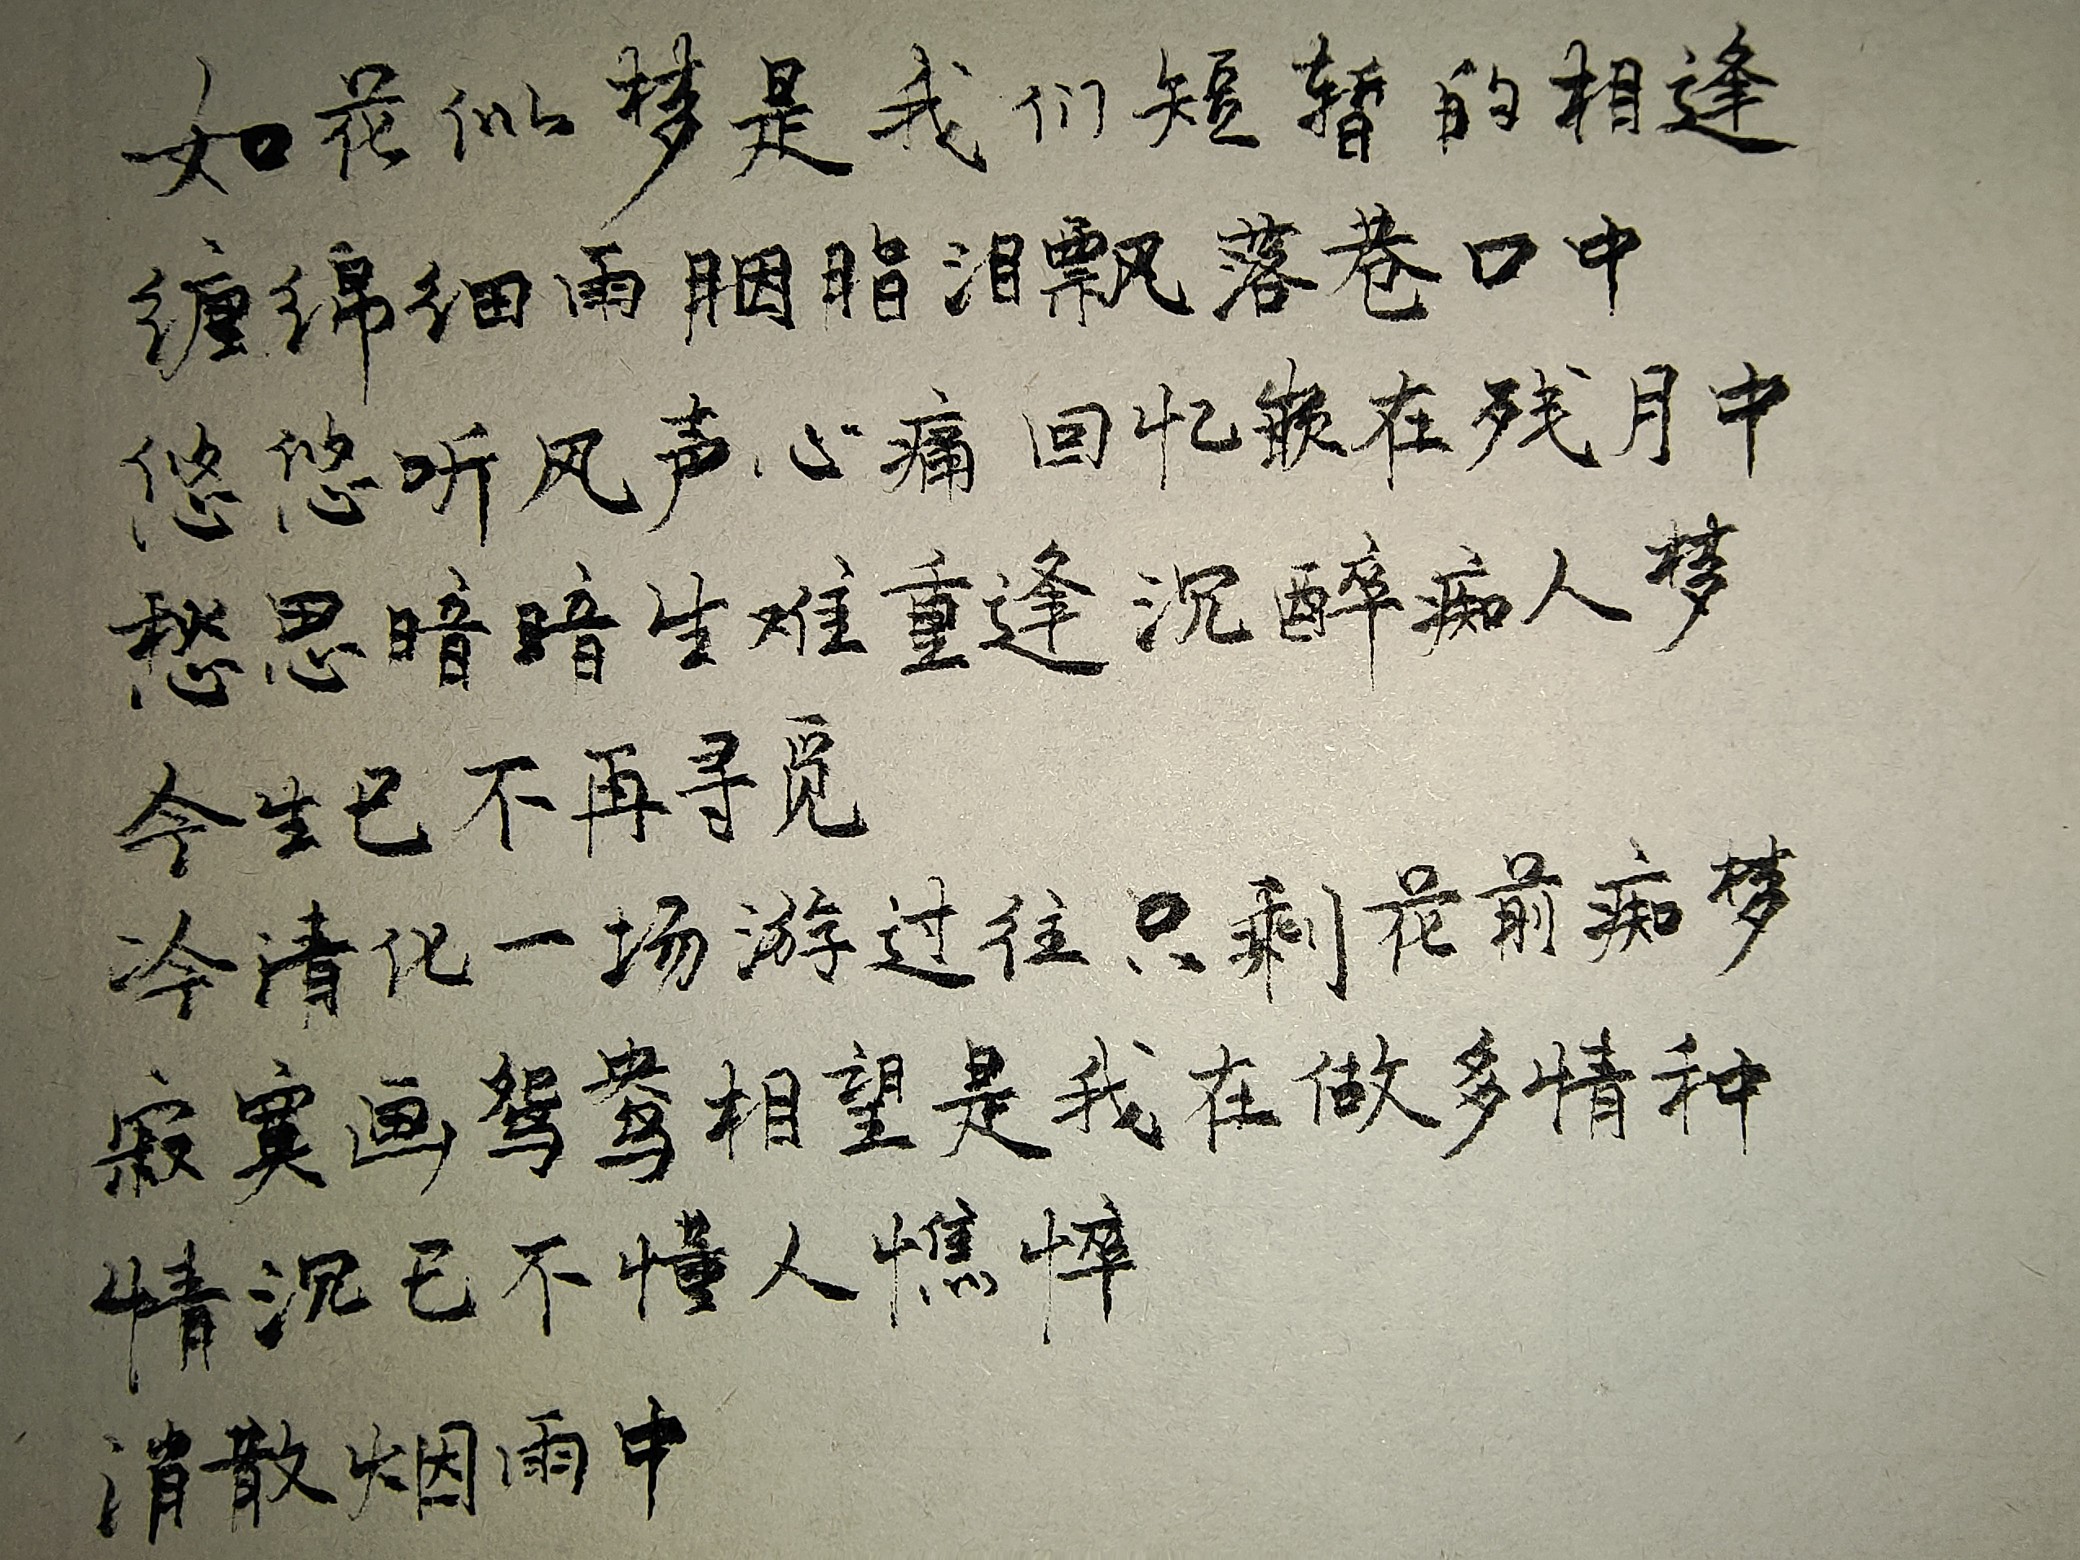 如花似梦是我们短暂的相逢
缠绵细雨胭脂泪飘落巷口中
悠悠听风声心痛回忆嵌在残月中
愁思暗暗生难重逢沉醉痴人梦
今生已不再寻觅
冷清化一场游过往只剩花前痴梦
寂寞画鸳鸯相望是我在做多情种
情沉已不懂人憔悴
消散烟雨中